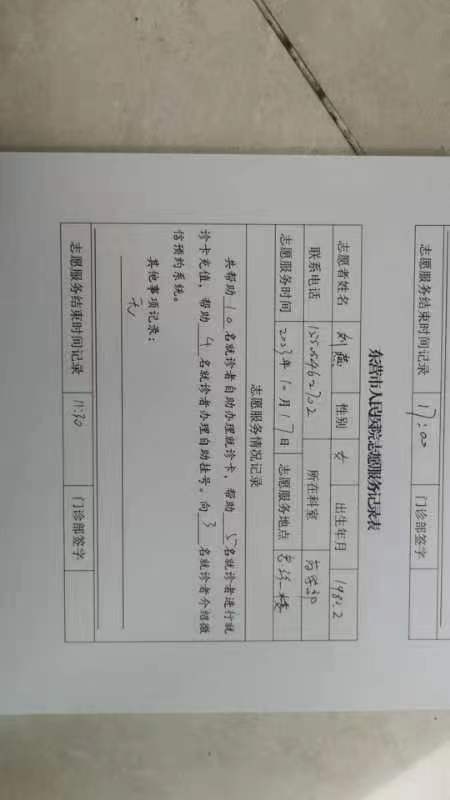 志愿服务结束时间记录 17:00 门诊部签字
东营市人民医院志愿服务记录表
志愿者姓名 刘燕 性别 女 出生年月 1982.2
联系电话 所在科室
志愿服务时间 2023年10月17日 志愿服务地点 门诊一楼
志愿服务情况记录
共帮助10名就诊者自助办理就诊卡,帮助5名就诊者进行就
诊卡充值,帮助4名就诊者办理自助挂号。向3名就诊者介绍微
信预约系统。
其他事项记录:
无
志愿服务结束时间记录 11:30 门诊部签字